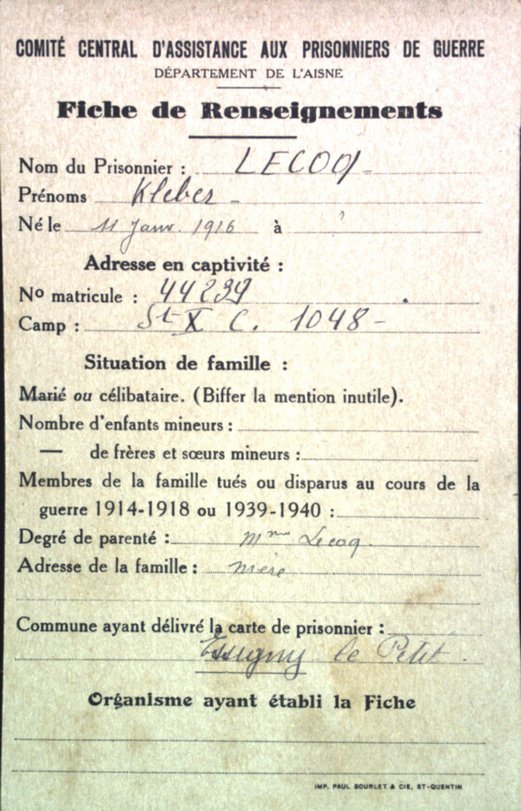 COMITÉ CENTRAL D'ASSISTANCE AUX PRISONNIERS DE GUERRE
DÉPARTEMENT DE L'AISNE
Fiche de Renseignements
Nom du Prisonnier : LECOQ
Prénoms Kleber
Né le 11 Janv. 1916 à
Adresse en captivité :
No matricule : 44239
Camp : St X C. 1048
Situation de famille :
Marié ou célibataire. (Biffer la mention inutile).
Nombre d'enfants mineurs :
— de frères et sœurs mineurs :
Membres de la famille tués ou disparus au cours de la
guerre 1914-1918 ou 1939-1940 :
Degré de parenté : Mme Lecoq
Adresse de la famille : mère
Commune ayant délivré la carte de prisonnier :
Essigny le Petit.
Organisme ayant établi la Fiche
IMP. PAUL BOURLET & CIE, ST-QUENTIN